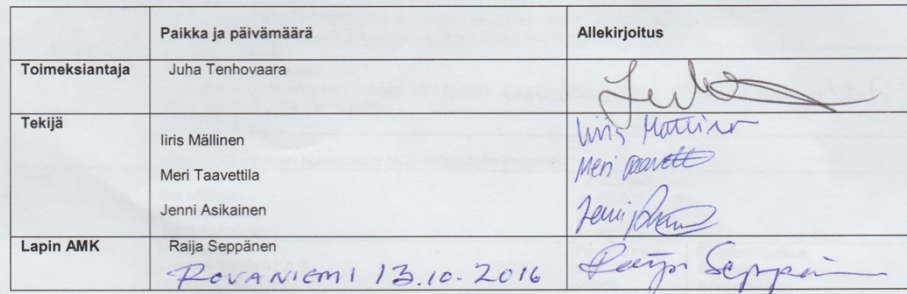 Paikka ja päivämäärä Allekirjoitus
Toimeksiantaja Juha Tenhovaara
Tekijä
Iiris Mällinen Iiris Mällinen
Meri Taavettila Meri
Jenni Asikainen Jenni
Lapin AMK Raija Seppänen
ROVANIEMI 13.10.2016 Raija Seppänen